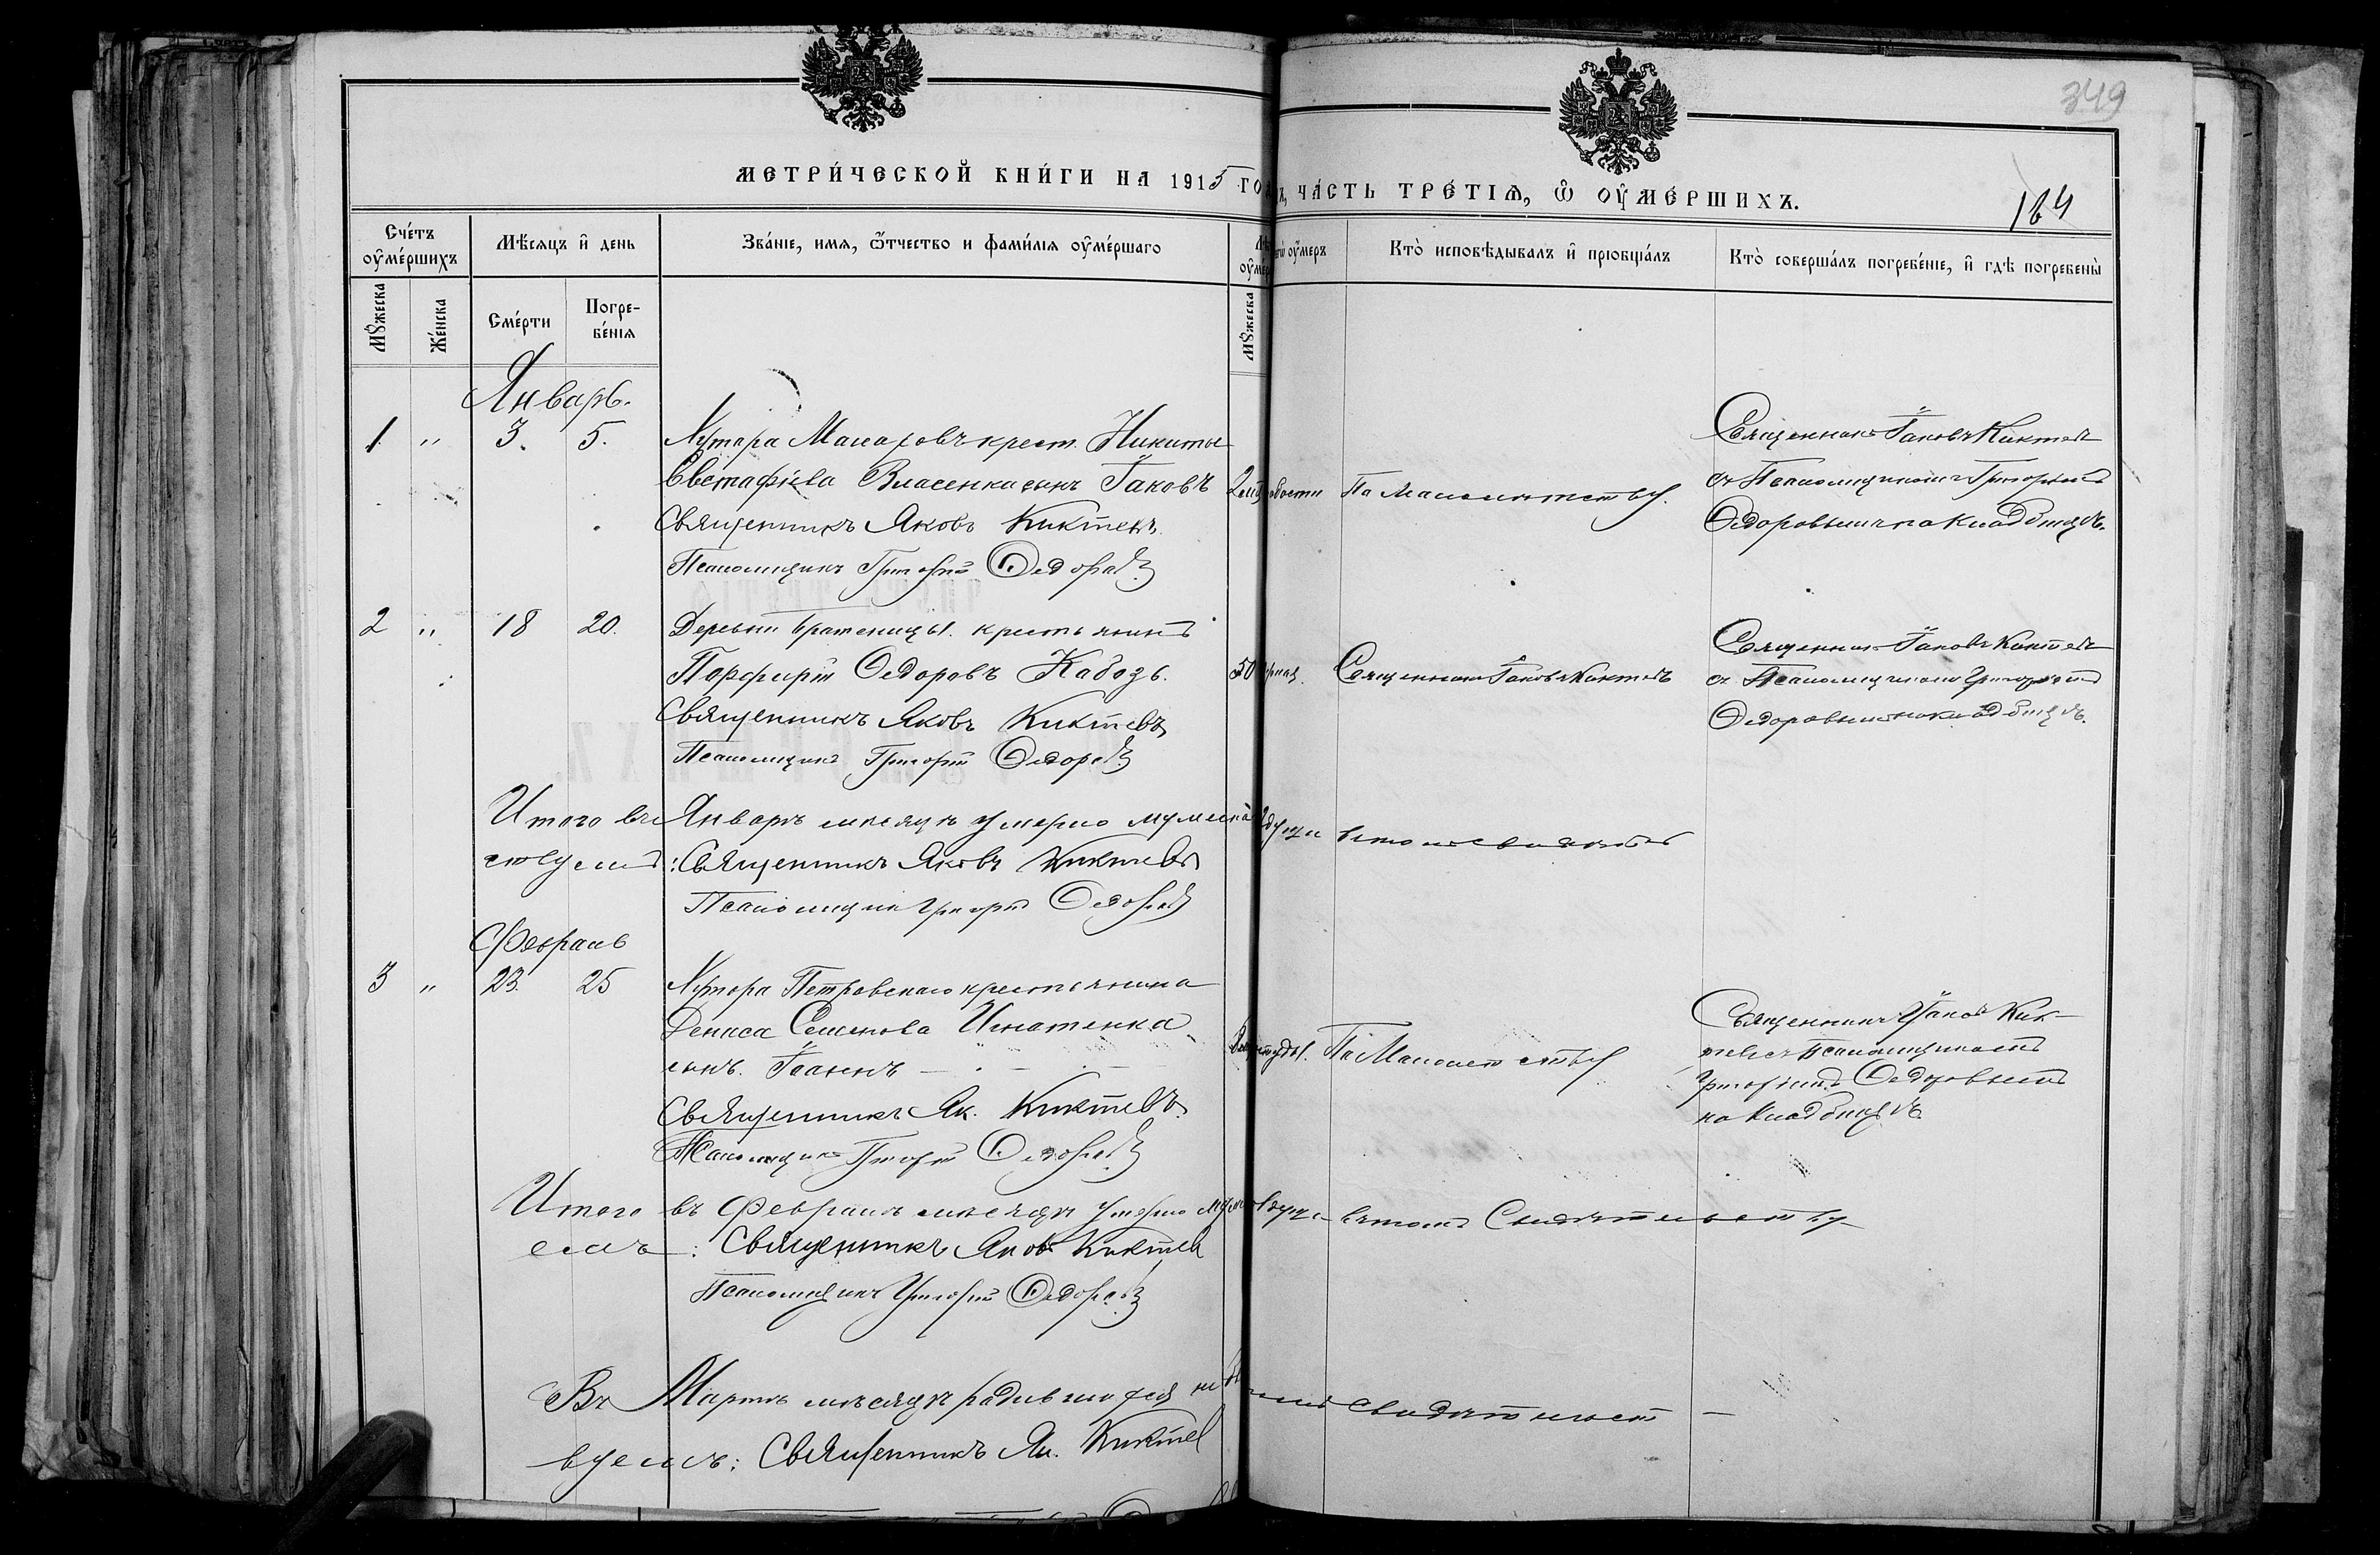 349
МЕТРИ́ЧЕСКОЙ КНИ́ГИ НА 1915 ГО
, ЧА́СТЬ ТРЕ́ТІѦ, Ѽ ОУМЕ́РШИХЪ.
164
Сче́тъ оуме́ршихъ
Мѣсяцъ и день
Зва́ніе, имя, ѿтчество и фами́лія оуме́ршаго
оумеръ
Кто̀ исповѣдывалъ и пріобщалъ
Кто̀ соверша́лъ погребе́ніе, и гдѣ погребены̀
Мужеска
Же́нска
Сме́рти
Погребе́нія
Мужеска
Январь.
1 " 3. 5. Хутора Макаровъ крест. Никиты
Евстафіева Власенка сынъ Іаковъ
Священникъ Яковъ Киктевъ
Псаломщикъ Григорій Ѳедоровъ
По Малолѣтству.
Священникъ Іаковъ Киктевъ
съ Псаломщикомъ Григоріемъ
Ѳедоровымъ на кладбищѣ.
2 " 18 20. Деревни Братеницы. крестьянинъ
Порфирій Ѳедоровъ Кабозь.
Священникъ Яковъ Киктевъ
Псаломщикъ Григорій Ѳедоровъ
50
Священникъ Іаковъ Киктевъ
Священникъ Іаковъ Киктевъ
съ Псаломщикомъ Григоріемъ
Ѳедоровымъ на кладбищѣ.
Итого въ Январѣ мѣсяцѣ умерло мужска 2 души въ томъ свидѣтель
ствуемъ: Священникъ Яковъ Киктевъ
Псаломщикъ Григорій Ѳедоровъ
Февраль
3 " 23. 25 Хутора Петровскаго крестьянина
Дениса Семенова Игнатенка
сынъ Іоаннъ
Священникъ Як. Киктевъ
Псаломщикъ Григорій Ѳедоровъ
По Малолетству
Священникъ Іаковъ Кик-
тевъ съ Псаломщикомъ
Григоріемъ Ѳедоровымъ
на Кладбищѣ.
Итого въ Февралѣ мѣсяцѣ умерло въ томъ Свидѣтельству
емъ: Священникъ Яковъ Киктев
Псаломщикъ Григорій Ѳедоровъ
Въ Мартѣ мѣсяцѣ свидѣтельст
вуемъ: Священникъ Як. Киктев